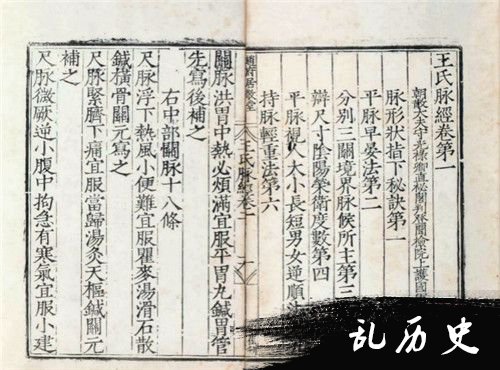 王氏脈經卷第一
朝散大夫守光祿卿直秘閣判登聞檢院上護
脈形狀指下秘訣第一
平脈早晏法第二
分別三關境界脈候所主第三
辯尺寸陰陽榮衛度數第四
平脈視人大小長短男女逆順法
持脈輕重法第六
王氏脈經卷
關脈洪胃中熱必煩滿宜服平胃丸鍼胃管
先寫後補之
右中部關脈十八條
尺脈浮下熱風小便難宜服瞿麥湯滑石散
鍼橫骨關元寫之
尺脈緊臍下痛宜服當歸湯灸天樞鍼關元
補之
尺脈微厥逆小腹中拘急有寒氣宜服小建
乱历史